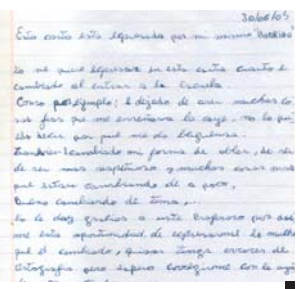 30/06/05
Esta carta esta espresada por mi mismo
Yo me quise espresar en esta carta cuanto e
cambiado al entrar a la Escuela.
Como por ejemplo; E dejado de aser muchas co
sas feas que me enseñava la caye, no la po
dia decir por que me da berguensa.
Tambien E cambiado mi forma de ablar, de ser
de ser mas respetuoso y muchas cosas mas
que estan cambiando de a poco,
Bueno cambiando de tema,...
Yo le doy grasias a este Profesor por dar
me esta oportunidad de espresarme lo mucho
que E cambiado, quisas tenga errores de
Ortografia pero espero corregirme con la ayu